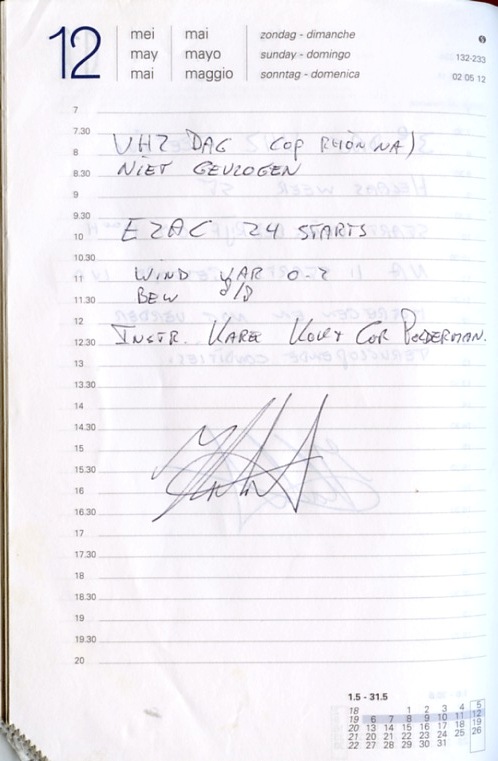 12
mei mai zondag - dimanche
may mayo sunday - domingo 132-233
mai maggio sonntag - domenica 02 05 12
7
7.30
VHZ DAG (OP RHÖNNA)
8
NIET GEVLOGEN
8.30
9
9.30
EZAC 24 STARTS
10
10.30
WIND VAR 0-2
11
BEW 8/8
11.30
12
INSTR. KAREL KOLY COR POLDERMAN.
12.30
13
13.30
14
14.30
15
15.30
16
16.30
17
17.30
18
18.30
19
19.30
20
1.5 - 31.5
18 1 2 3 4 5
19 6 7 8 9 10 11 12
20 13 14 15 16 17 18 19
21 20 21 22 23 24 25 26
22 27 28 29 30 31